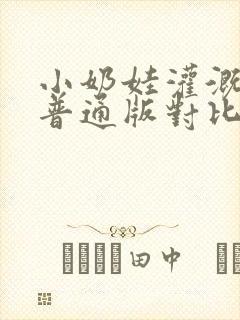 小奶娃灌溉
普通版對比
田中